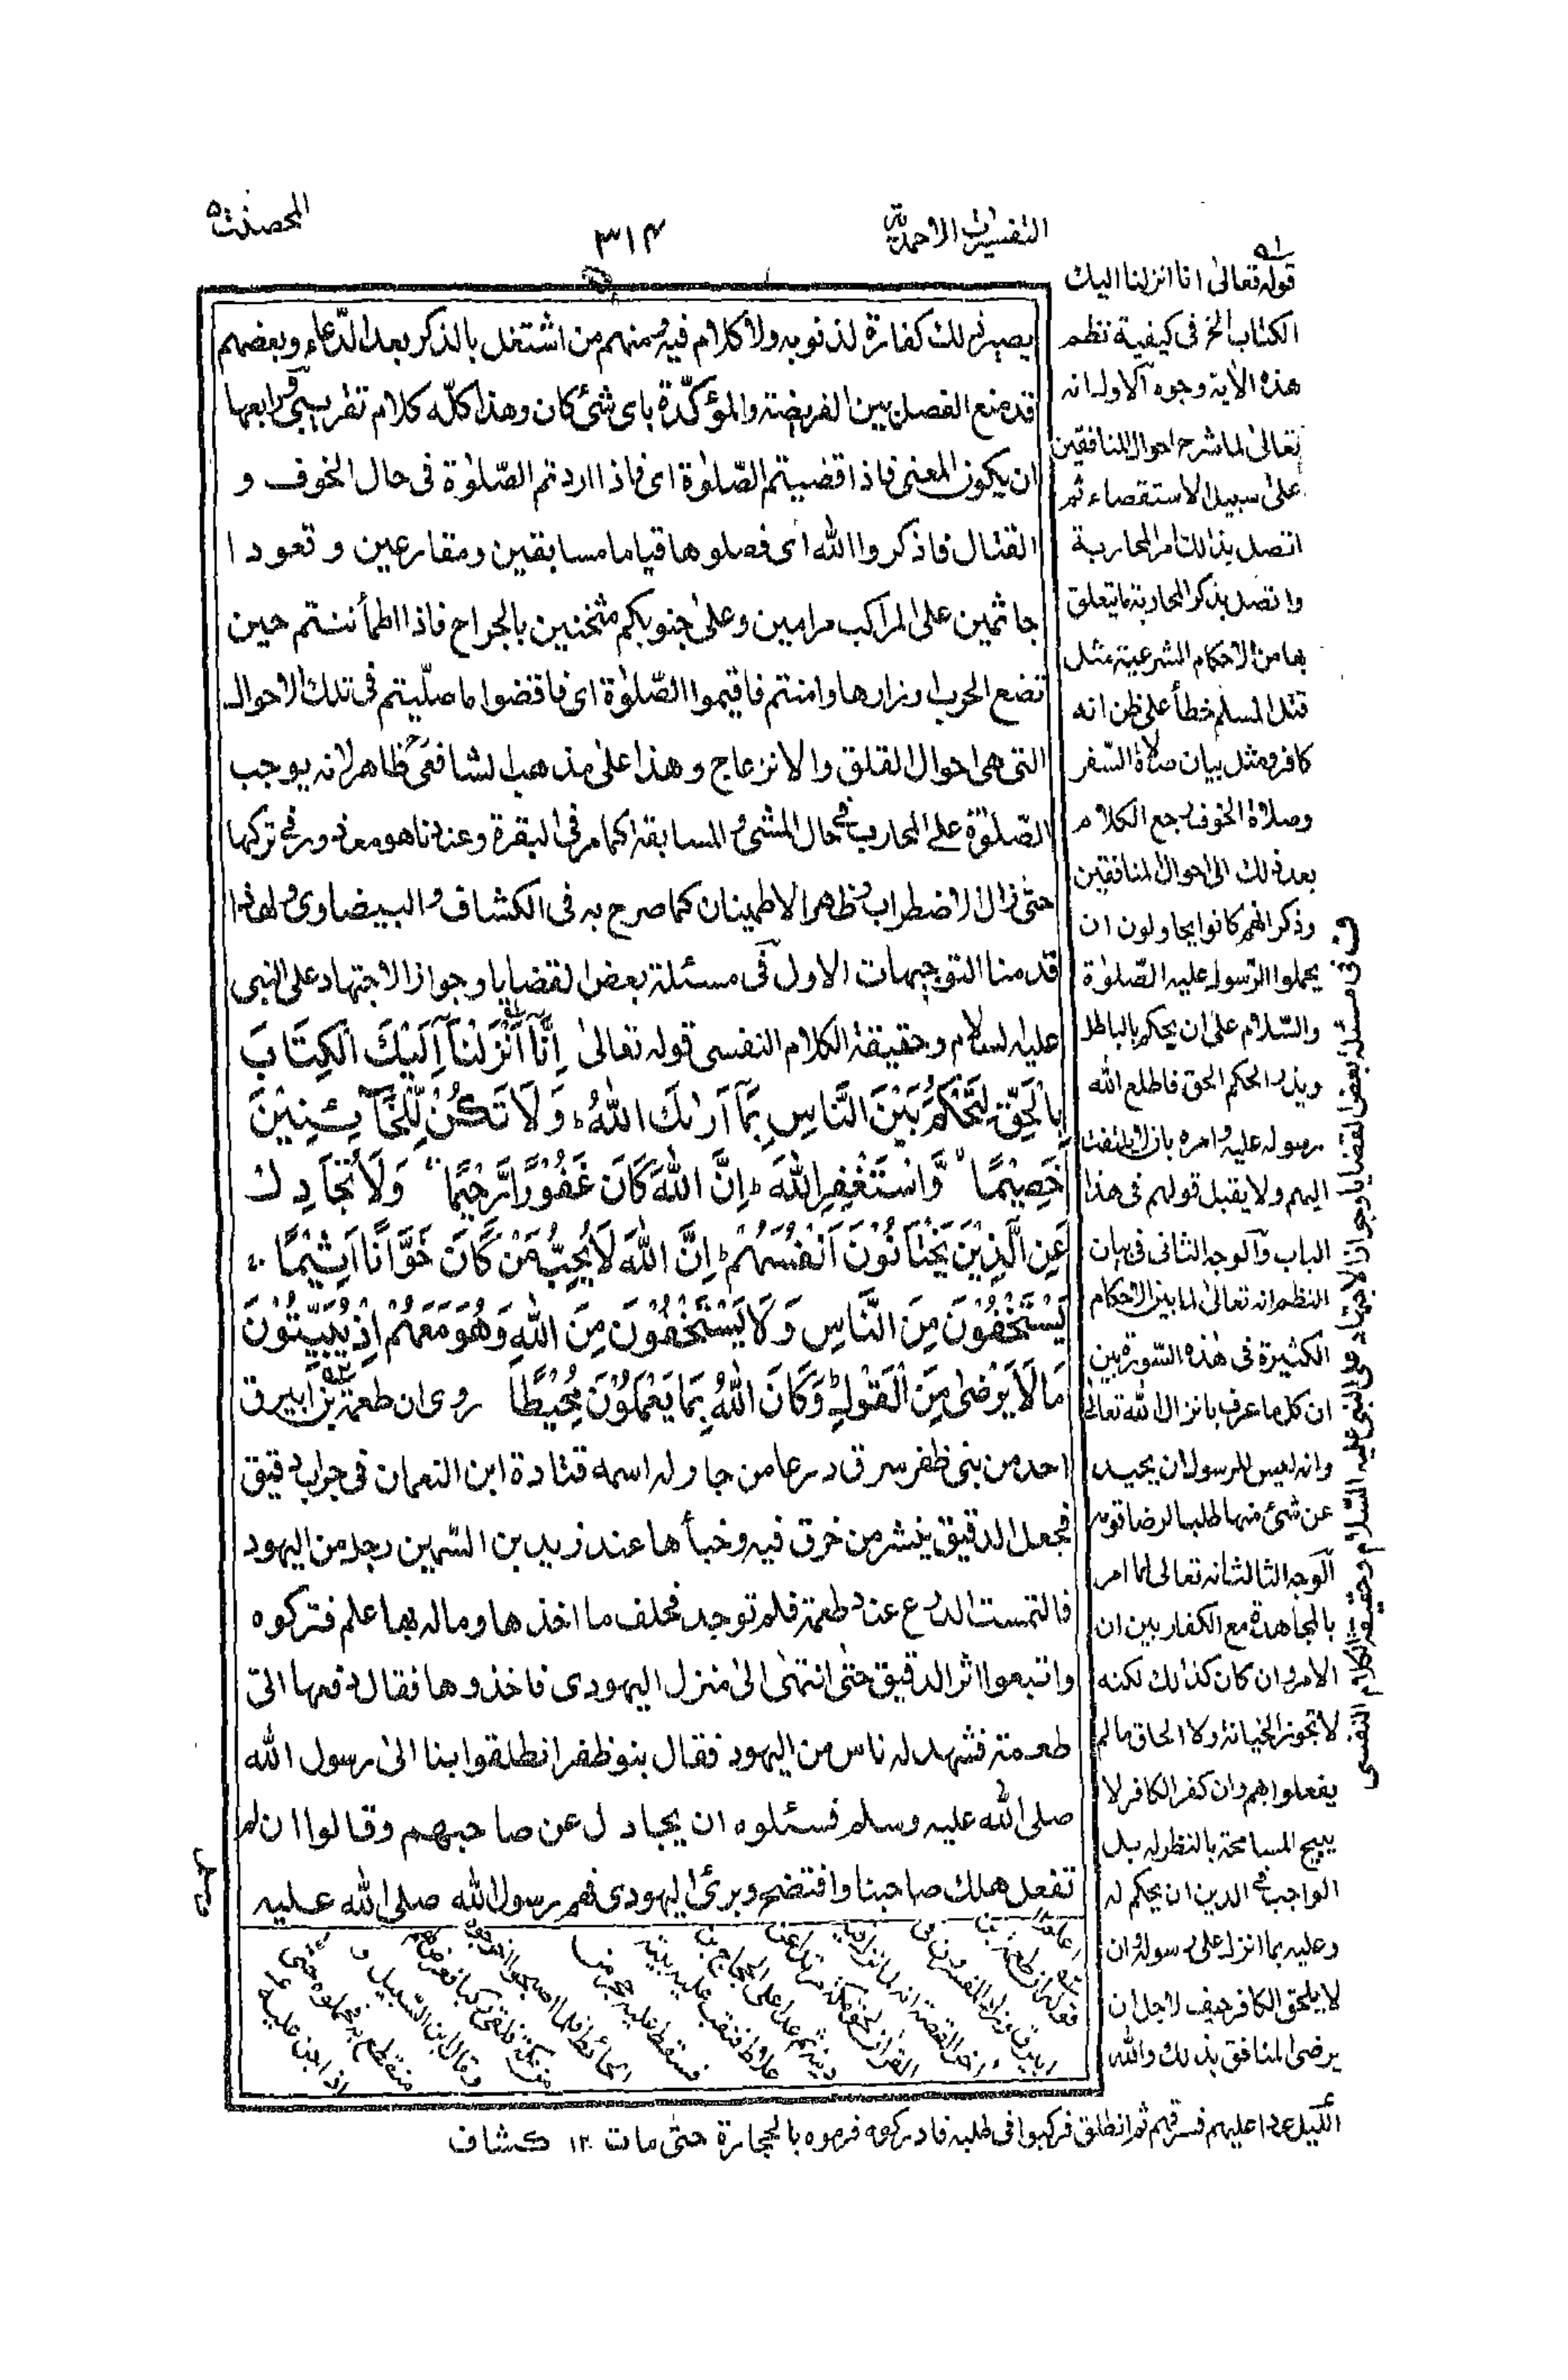 التفسيرات الاحمدية
٣١٤
المحصنت ٥
يصير ذلك كفارة لذنوبه ولا كلام فيه ومنهم من اشتغل بالذكر بعد الدّعاء وبعضهم
قد منع الفصل بين الفريضة والمؤكّدة بای شئ كان وهذا كلّه كلام تقريبی ورابعها
ان يكون المعنی فاذا قضيتم الصّلوٰة ای فاذا اردتم الصّلوٰة فی حال الخوف و
القتال فاذكروا الله ای فصلوها قياما مسابقين ومقارعين وقعودا
جاثمين علی المراكب مرامين وعلی جنوبكم مثخنين بالجراح فاذا اطمأننتم حين
تضع الحرب اوزارها وامنتم فاقيموا الصّلوٰة ای فاقضوا ما صلّيتم فی تلك الاحوال
التی هی احوال القلق والانزعاج وهذا علی مذهب الشافعی ظاهر لانه يوجب
الصّلوٰة علی المحارب فی حال المشی والمسابقة كما مر فی البقرة وعندنا هو معذور فی تركها
حتی زال الاضطراب وظاهر الاطمينان كما صرح به فی الكشاف والبيضاوی ولهذا
قدمنا التوجيهات الاول فی مسئلة بعض القضايا وجواز الاجتهاد علی النبی
عليه السلام وحقيقة الكلام النفسی قوله تعالیٰ اِنَّآ اَنْزَلْنَآ اِلَيْكَ الْكِتَابَ
بِالْحَقِّ لِتَحْكُمَ بَيْنَ النَّاسِ بِمَآ اَرٰىكَ اللّٰهُ وَلَا تَكُنْ لِّلْخَآئِنِيْنَ
خَصِيْمًا وَّاسْتَغْفِرِ اللّٰهَ اِنَّ اللّٰهَ كَانَ غَفُوْرًا رَّحِيْمًا وَلَا تُجَادِلْ
عَنِ الَّذِيْنَ يَخْتَانُوْنَ اَنْفُسَهُمْ اِنَّ اللّٰهَ لَا يُحِبُّ مَنْ كَانَ خَوَّانًا اَثِيْمًا
يَسْتَخْفُوْنَ مِنَ النَّاسِ وَلَا يَسْتَخْفُوْنَ مِنَ اللّٰهِ وَهُوَ مَعَهُمْ اِذْ يُبَيِّتُوْنَ
مَا لَا يَرْضٰی مِنَ الْقَوْلِ وَكَانَ اللّٰهُ بِمَا يَعْمَلُوْنَ مُحِيْطًا روی ان طعمة بن ابيرق
احد من بنی ظفر سرق درعا من جار له اسمه قتادة ابن النعمان فی جراب دقيق
فجعل الدقيق ينثر من خرق فيه وخبأها عند زيد بن السّمين رجل من اليهود
فالتمست الدرع عند طعمة فلم توجد فحلف ما اخذها وما له بها علم فتركوه
واتبعوا اثر الدقيق حتی انتهی الی منزل اليهودی فاخذوها فقال دفعها الیّ
طعمة فشهد له ناس من اليهود فقال بنو ظفر انطلقوا بنا الی رسول الله
صلی الله عليه وسلم فسئلوه ان يجادل عن صاحبهم وقالوا ان لم
تفعل هلك صاحبنا وافتضح وبرئ اليهودی فهم رسول الله صلی الله عليه
قوله تعالیٰ انا انزلنا اليك
الكتاب الخ فی كيفية نظم
هذه الاٰية وجوه الاول انه
تعالیٰ لما شرح احوال المنافقين
علی سبيل الاستقصاء ثم
اتصل بذالك امر المحاربة
واتصل بذكر المحاربة ما يتعلق
بها من الاحكام الشرعية مثل
قتل المسلم خطأ علی ظن انه
كافر ومثل بيان صلاة السّفر
وصلاة الخوف رجع الكلام
بعد ذلك الی احوال المنافقين
وذكر انهم كانوا يحاولون ان
يحملوا الرّسول عليه الصّلوٰة
والسّلام علی ان يحكم بالباطل
ويذر الحكم الحق فاطلع الله
رسوله عليه وامره بان لا يلتفت
اليهم ولا يقبل قولهم فی هذا
الباب والوجه الثانی فی بيان
النظم انه تعالیٰ لما بين الاحكام
الكثيرة فی هذه السّورة بين
ان كل ما عرف بانزال الله تعالیٰ
وانه ليس للرسول ان يحيد
عن شئ منها طلبا لرضا قومه
الوجه الثالث انه تعالی لما امر
بالمجاهدة مع الكفار بين ان
الامر وان كان كذلك لكنه
لا تجوز الخيانة ولا الحاق ما لم
يفعلوا بهم وان كفر الكافر لا
يبيح المسامحة بالنظر له بل
الواجب فی الدين ان يحكم له
وعليه بما انزل علی رسوله وان
لا يلحق الكافر حيف لاجل ان
يرضی المنافق بذلك والله
ف فی مسئلة بعض القضايا وجواز الاجتهاد علی النبی عليه السّلام وحقيقة الكلام النفسی
الليل عدا عليهم فسرقهم ثم انطلق فركبوا فی طلبه فادركوه فرموه بالحجارة حتی مات ١٢ كشاف